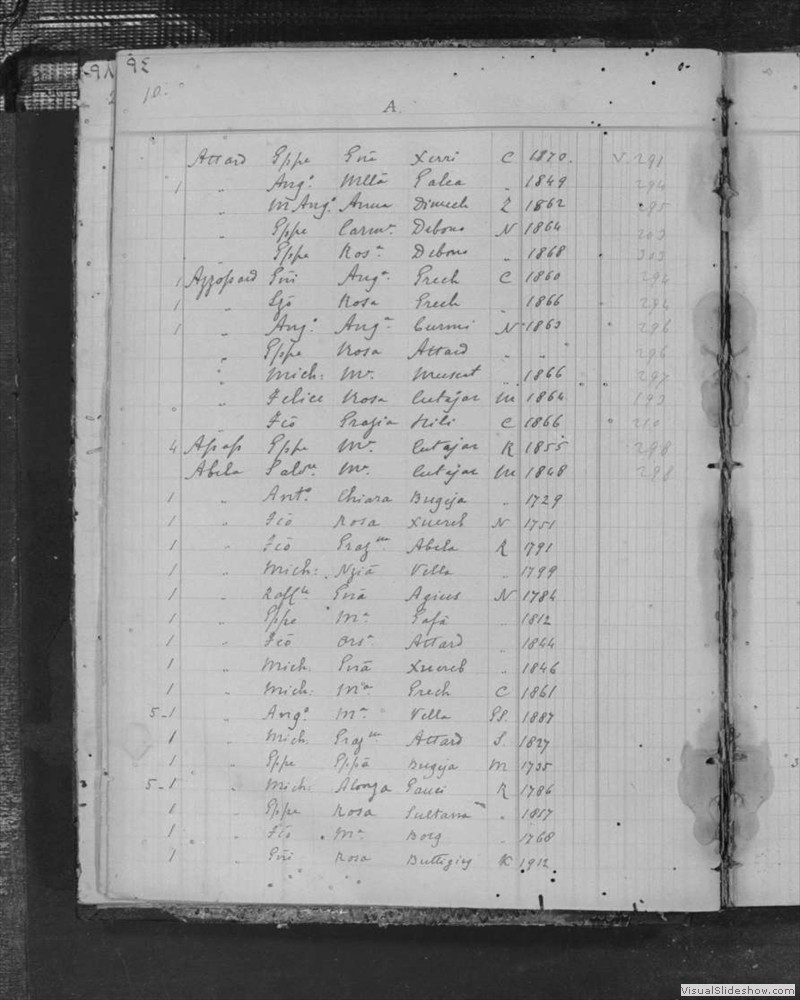 10.
A
Attard Gppe Gnā Xerri C 1870. V. 291
1 " Ang.o Mllā Galea " 1849 294
" M Ang.o Anna Dimech Z 1862 295
" Gppe Carm.a Debono N 1864 303
" Gppe Ros.a Debono " 1868 303
1 Azzopard Gni Ang.a Grech C 1860 294
1 " Rosa Grech " 1866 294
1 " Ang.o Ang.a Curmi N 1863 296
" Gppe Rosa Attard " " 296
" Mich: M.a Muscat " 1866 297
" Felice Rosa Cutajar M 1864 193
" Fcō Grazia Mili C 1866 210
4 Gppe M.a Cutajar K 1855 298
Abela Salv.e M.a Cutajar M 1848 298
1 " Ant.o Chiara Bugeja " 1729
1 " Fcō Rosa Xuereb N 1751
1 " Fcō Graz.lla Abela K 1791
1 " Mich: Nziā Vella " 1799
1 " Raff.le Gnā Agius N 1784
1 " Gppe M.a Gafà " 1812
1 " Fcō Ors.a Attard " 1844
1 " Mich. Gnā Xuereb " 1846
1 " Mich: M.a Grech C 1861
5-1 " Ang.o M.a Vella GS. 1887
1 " Mich. Graz.lla Attard S. 1827
1 " Gppe Gppā Bugeja M 1735
5-1 " Mich: Alonza Gauci K 1786
1 " Gppe Rosa Sultana " 1817
1 " Fcō M.a Borg " 1768
1 " Gni Rosa Buttigieg K 1912
VisualSlideshow.com